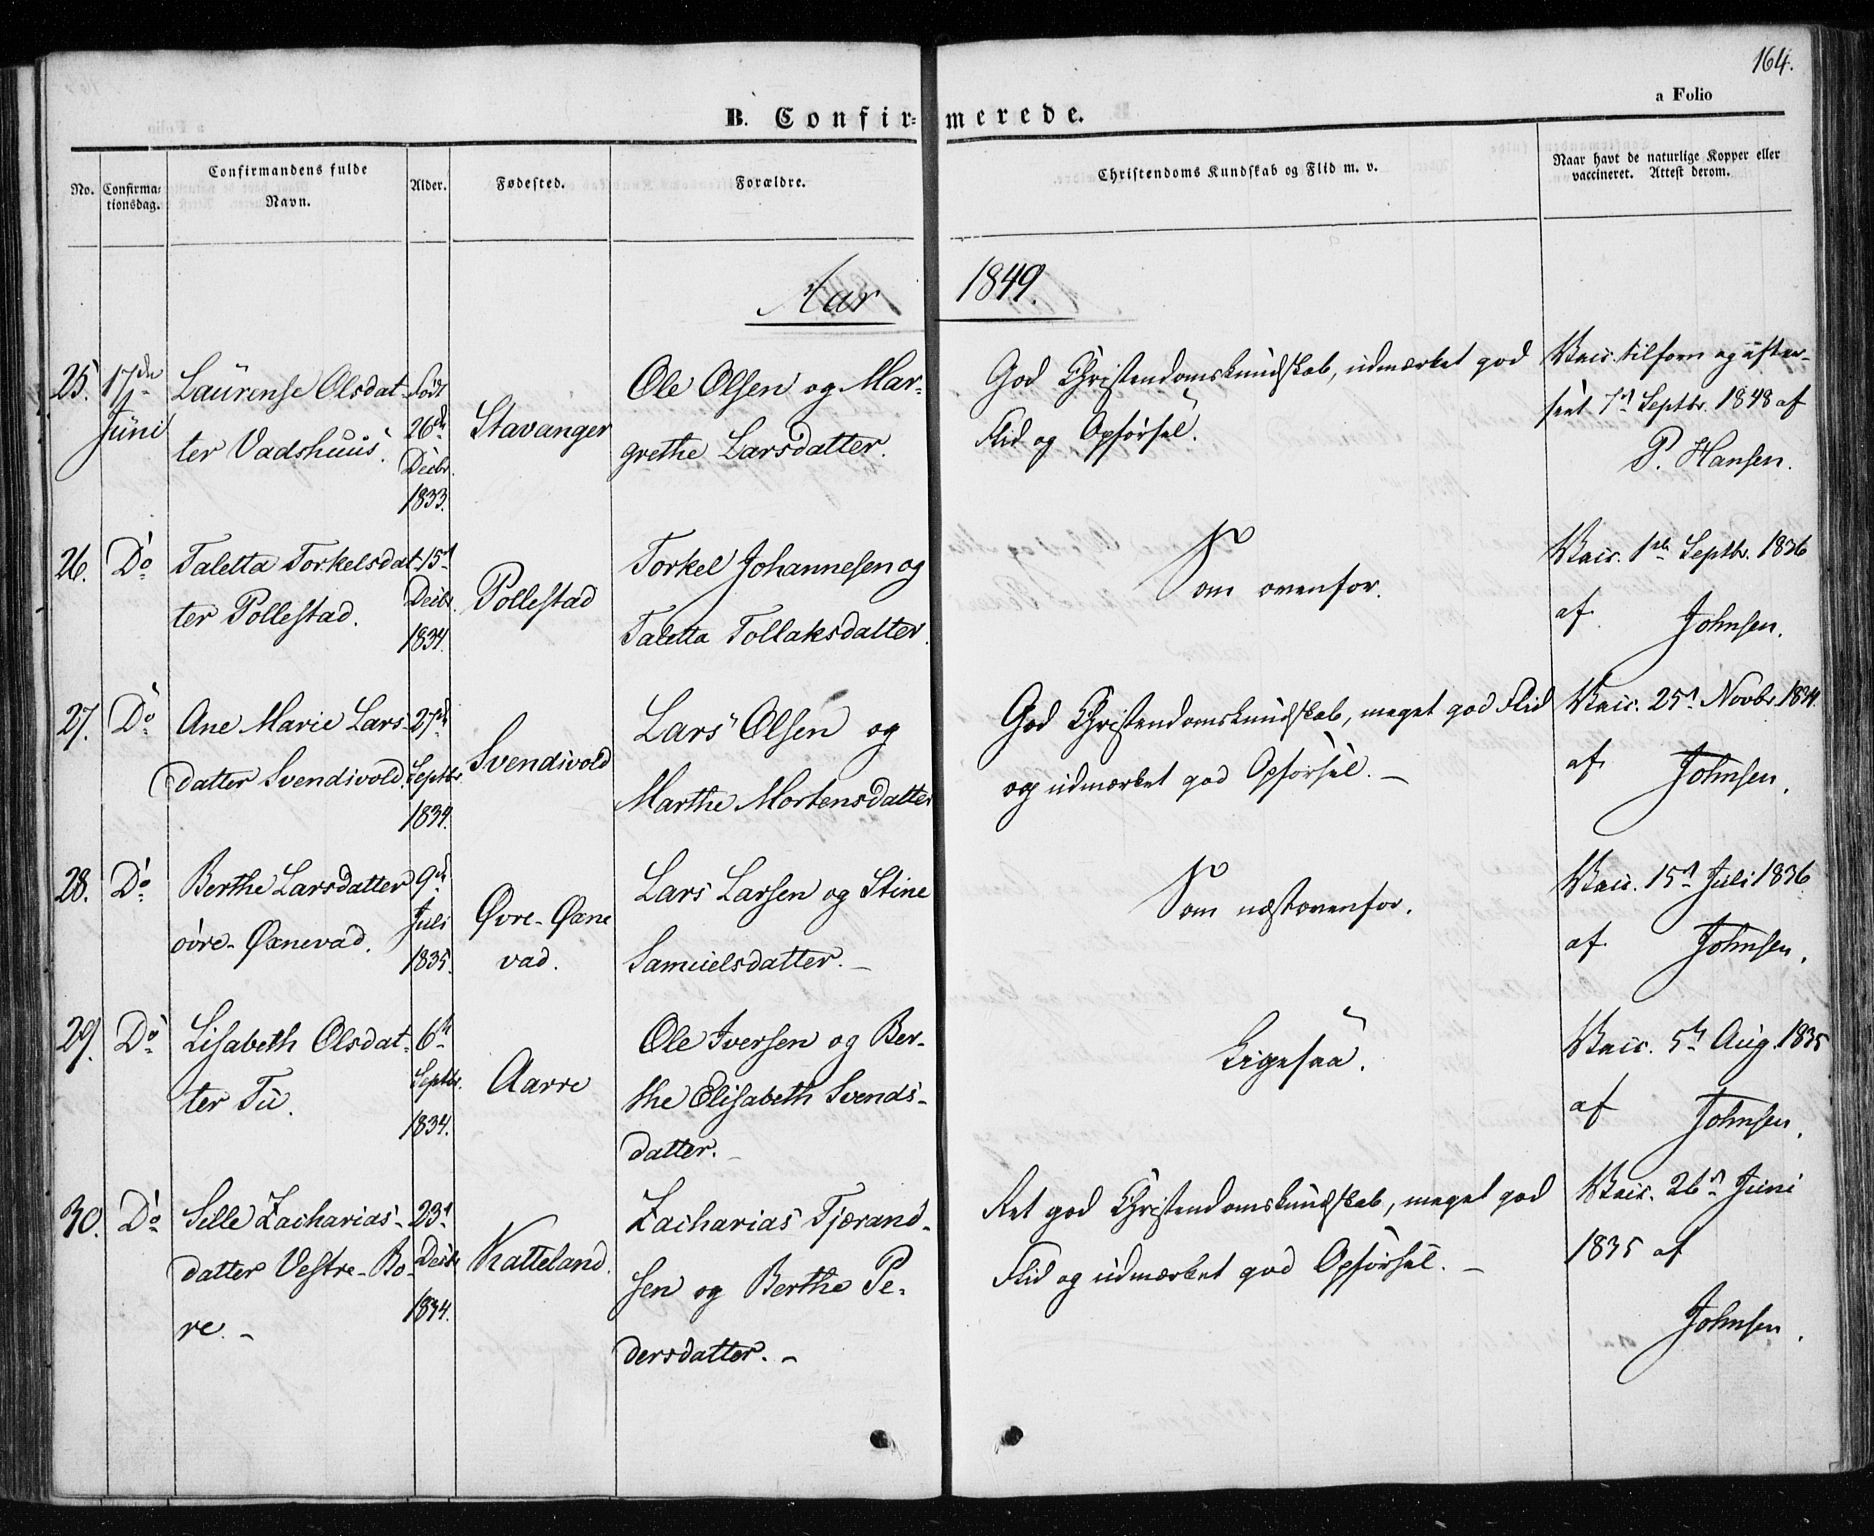 164.
a Folio
B. Confir-merede.
No.
Confirma-
tionsdag.
Confirmandens fulde
Navn.
Alder.
Fødested.
Forældre.
Christendoms Kundskab og Flid m. v.
Naar havt de naturlige Kopper eller
vaccineret. Attest derom.
Aar 1849.
25.
17de
Juni
Laurense Olsdat-
ter Vadshuus.
Født
26de
Decbr.
1833.
Stavanger
Ole Olsen og Mar-
grethe Larsdatter.
God Christendomskundskab, udmærket god
Flid og Opførsel.
Vacc. tilforn og efter-
seet 7d Septbr. 1848 af
P. Hansen.
26.
Do
Taletta Torkelsdat-
ter Pollestad.
15d
Decbr.
1834.
Pollestad
Torkel Johannesen og
Taletta Tollaksdatter.
Som ovenfor.
Vacc. 1ste Septbr. 1836
af Johnsen.
27.
Do
Ane Marie Lars-
datter Svendivold.
27de
Septbr
1834.
Svendivold
Lars Olsen og
Marthe Mortensdatter
God Christendomskundskab, meget god Flid
og udmærket god Opførsel. -
Vacc. 25d Novbr 1834.
af Johnsen.
28.
Do
Berthe Larsdatter
øvre-Øxnevad.
9de
Juli
1835.
Øvre-Øxne
vad.
Lars Larsen og Stine
Samuelsdatter. -
Som næstovenfor.
Vacc. 15d Juli 1836
af Johnsen.
29.
Do
Lisabeth Olsdat-
ter Tu.
6te
Septbr.
1834.
Aarre
Ole Iversen og Ber-
the Elisabeth Svends-
datter. -
Ligesaa.
Vacc. 5te Aug. 1835
af Johnsen.
30.
Do
Sille Zacharias-
datter Vestre-Bo-
re. -
23d
Decbr
1834.
Katteland.
Zacharias Tjærand-
sen og Berthe Pe-
dersdatter. -
Ret god Christendomskundskab, meget god
Flid og udmærket god Opførsel. -
Vacc. 26d Juni
1835 af
Johnsen.